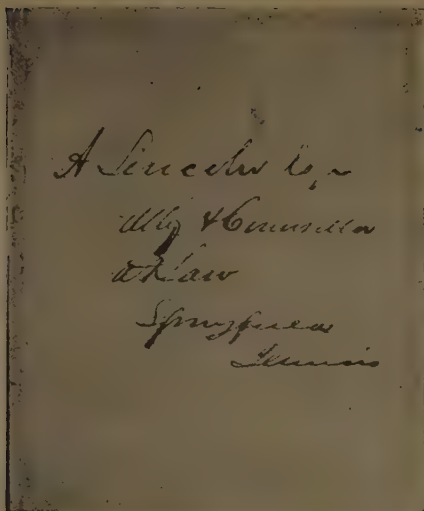 A Lincoln Esq
Atty & Counsellor
at Law
Springfield
Illinois